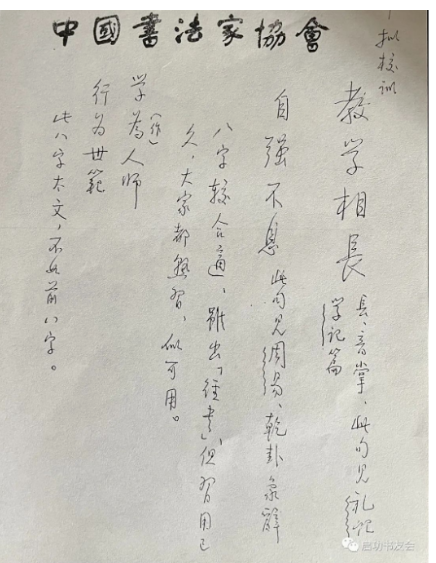 中國書法家協會
拟校训
教学相長 長、音掌,此句见礼记
学记篇
自强不息 此句见周易、乾卦象辞
八字较合適,虽出「经书」,但習用已
久,大家都熟習,似可用。
学為人师
(作)
行为世範
此八字太文,不如前八字。
启功书友会